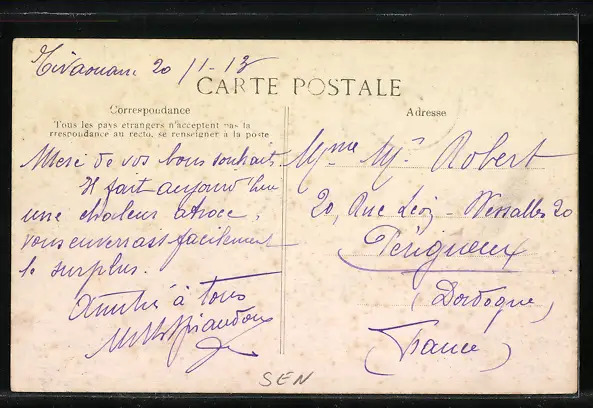 Tivaouane 20/1-13
CARTE POSTALE
Correspondance
Tous les pays étrangers n'acceptent pas la
rrespondance au recto, se renseigner à la poste
Merci de vos bons souhaits.
Il fait aujourd'hui
une chaleur atroce,
vous enverrais facilement
le surplus.
Amitié à tous
Adresse
Mme Mce Robert
20, Rue - 20
Périgueux
(Dordogne)
(France)
SEN